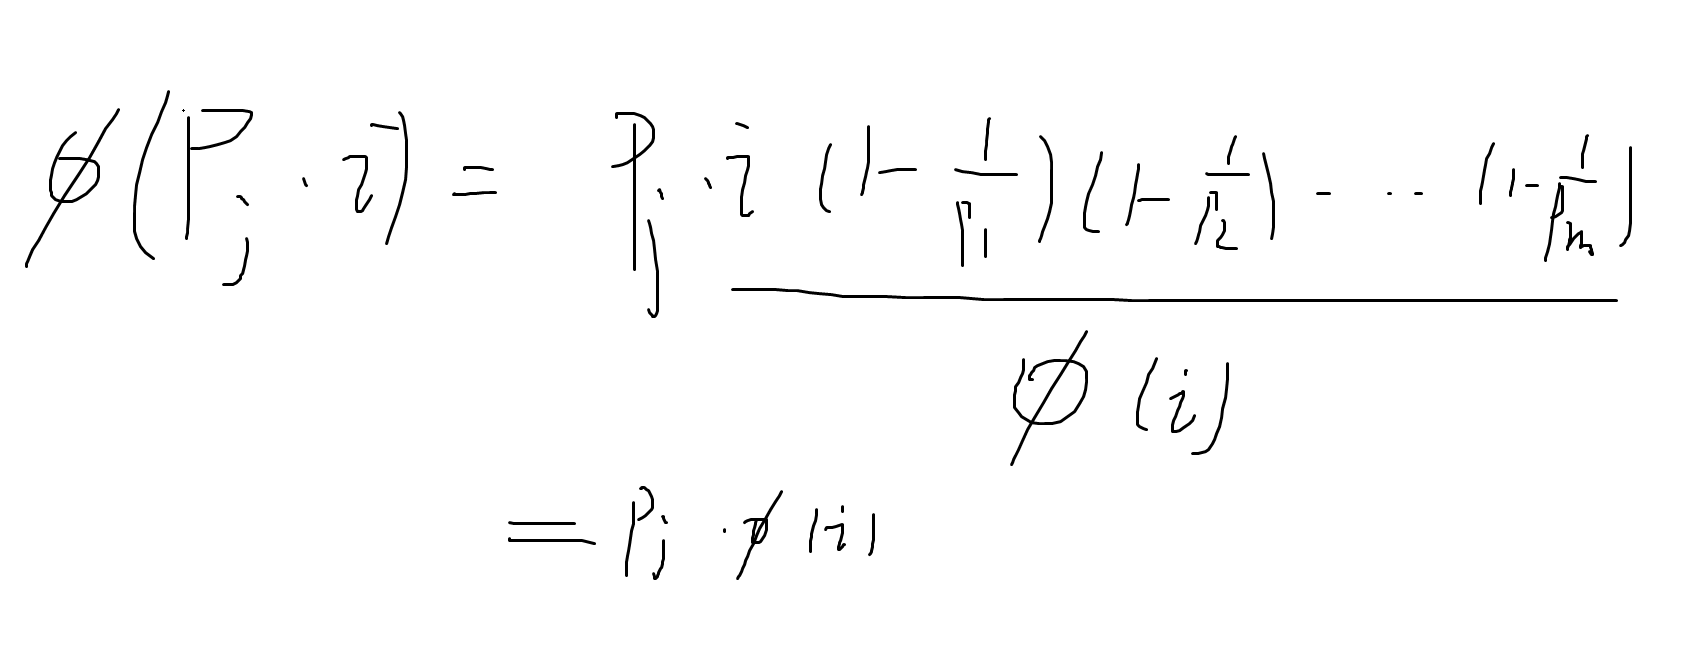 φ(P_j · i) = P_j · i (1 - 1/P_1)(1 - 1/P_2) - ·· (1 - 1/P_m)
φ(i)
= P_j · φ(i)